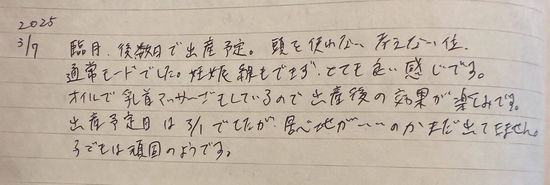 2025
3/7 臨月、後数日で出産予定。頭を使わない 考えない位、
通常モードでした。妊娠線もできず、とても良い感じです。
オイルで乳首マッサージもしているので出産後の効果が楽しみです。
出産予定日は3/1でしたが、居心地がいいのかまだ出てきません。
子どもは頑固のようです。